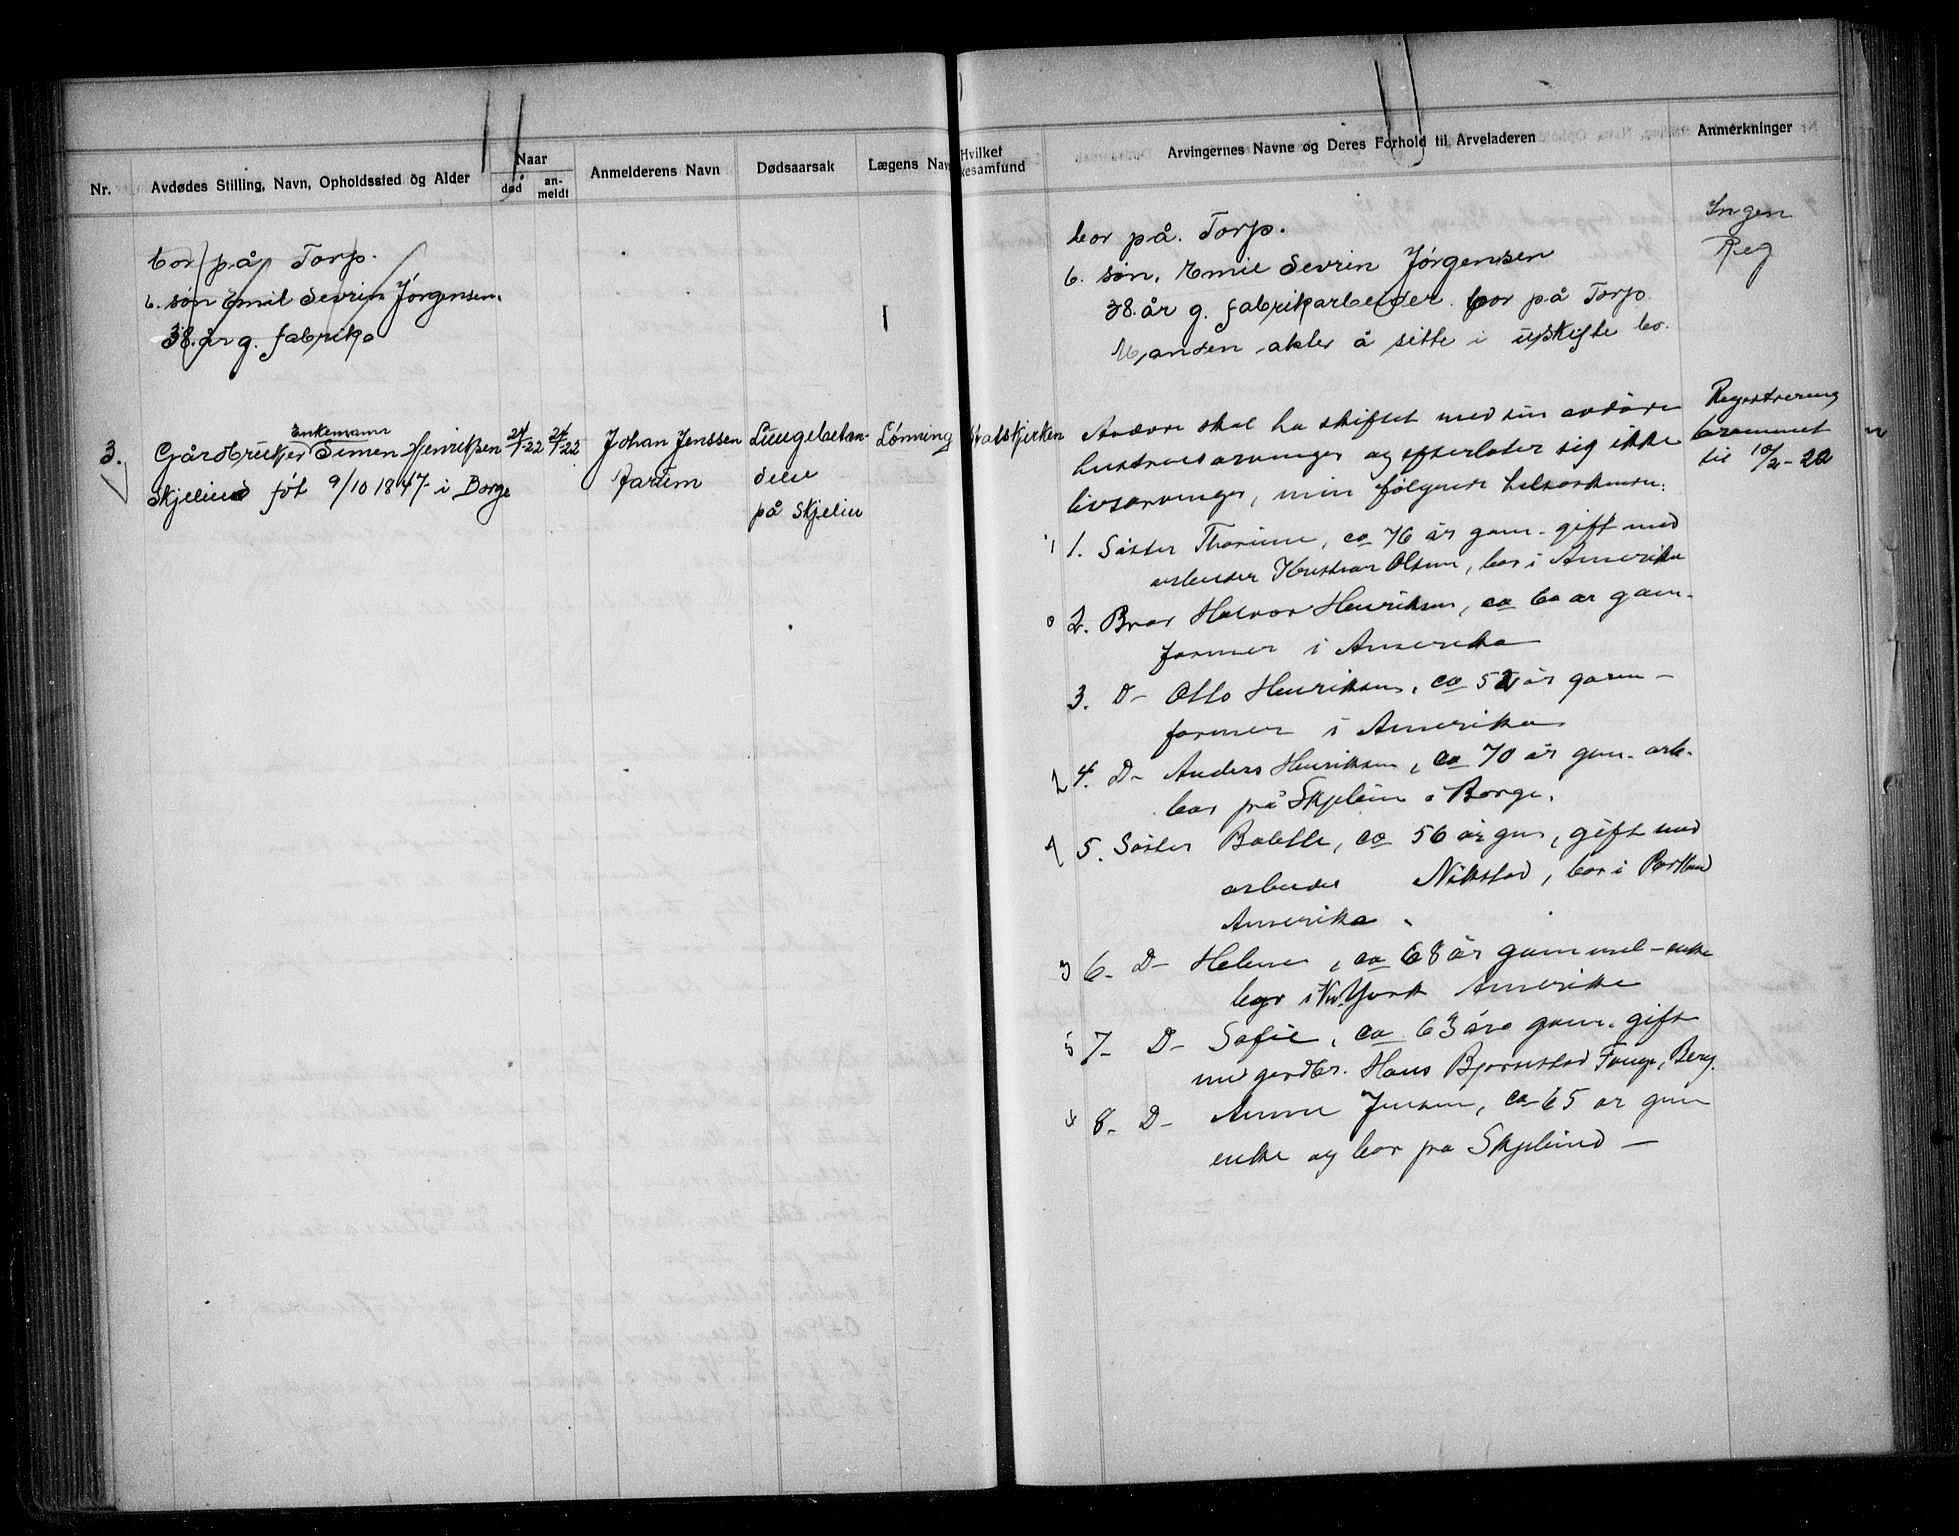 Nr.
Avdødes Stilling, Navn, Opholdssted og Alder
Naar
død
an-
meldt
Anmelderens Navn
Dødsaarsak
Lægens Nav
Hvilket
kesamfund
Arvingernes Navne og Deres Forhold til Arveladeren
Anmerkninger
bor på Torp.
6. søn Emil Sevrin Jørgensen.
38. år g. fabrika
bor på. Torp.
6. søn, Emil Sevrin Jørgensen
38. år g. fabrikarbeider. bor på Torp.
Manden akter å sitte i uskifte bo.
Ingen
Reg
3.
Enkemann
Gårdbruker Simen Henriksen
Skjelind født 9/10 1847 i Borge
24/1-22
24/1-22
Johan Jenssen
Lungebetæn-
delse
på Skjelin
Lønning
Statskirken
Avdøde skal ha skiftet med sin avdøde
hustrues arvinger og efterlater sig ikke
livsarvinger, men følgende helsøskende:
1. Søster Thorine, ca 76 år gam. gift med
arbeider Kristian Olsen, bor i Amerika
2. Bror Halvor Henriksen, ca 60 år gam-
farmer i Amerika
3. D- Otto Henriksen, ca 52 år gam-
farmer i Amerika
4. D- Anders Henriksen, ca 70 år gam. arb.
bor på Skjelin i Borge.
5. Søster Bolette, ca 56 år gm, gift med
arbeider Nikstad, bor i Portland
Amerika.
6- D- Helene, ca 68 år gammel - enke
bor i New York Amerika
7- D- Sofie, ca 63 år gam. gift
med gardbr. Hans Bjørnstad Berg.
8- D- Anne Jensen, ca 65 år gam
enke og bor på Skjelind -
Registrering
berammet
til 10/2-22